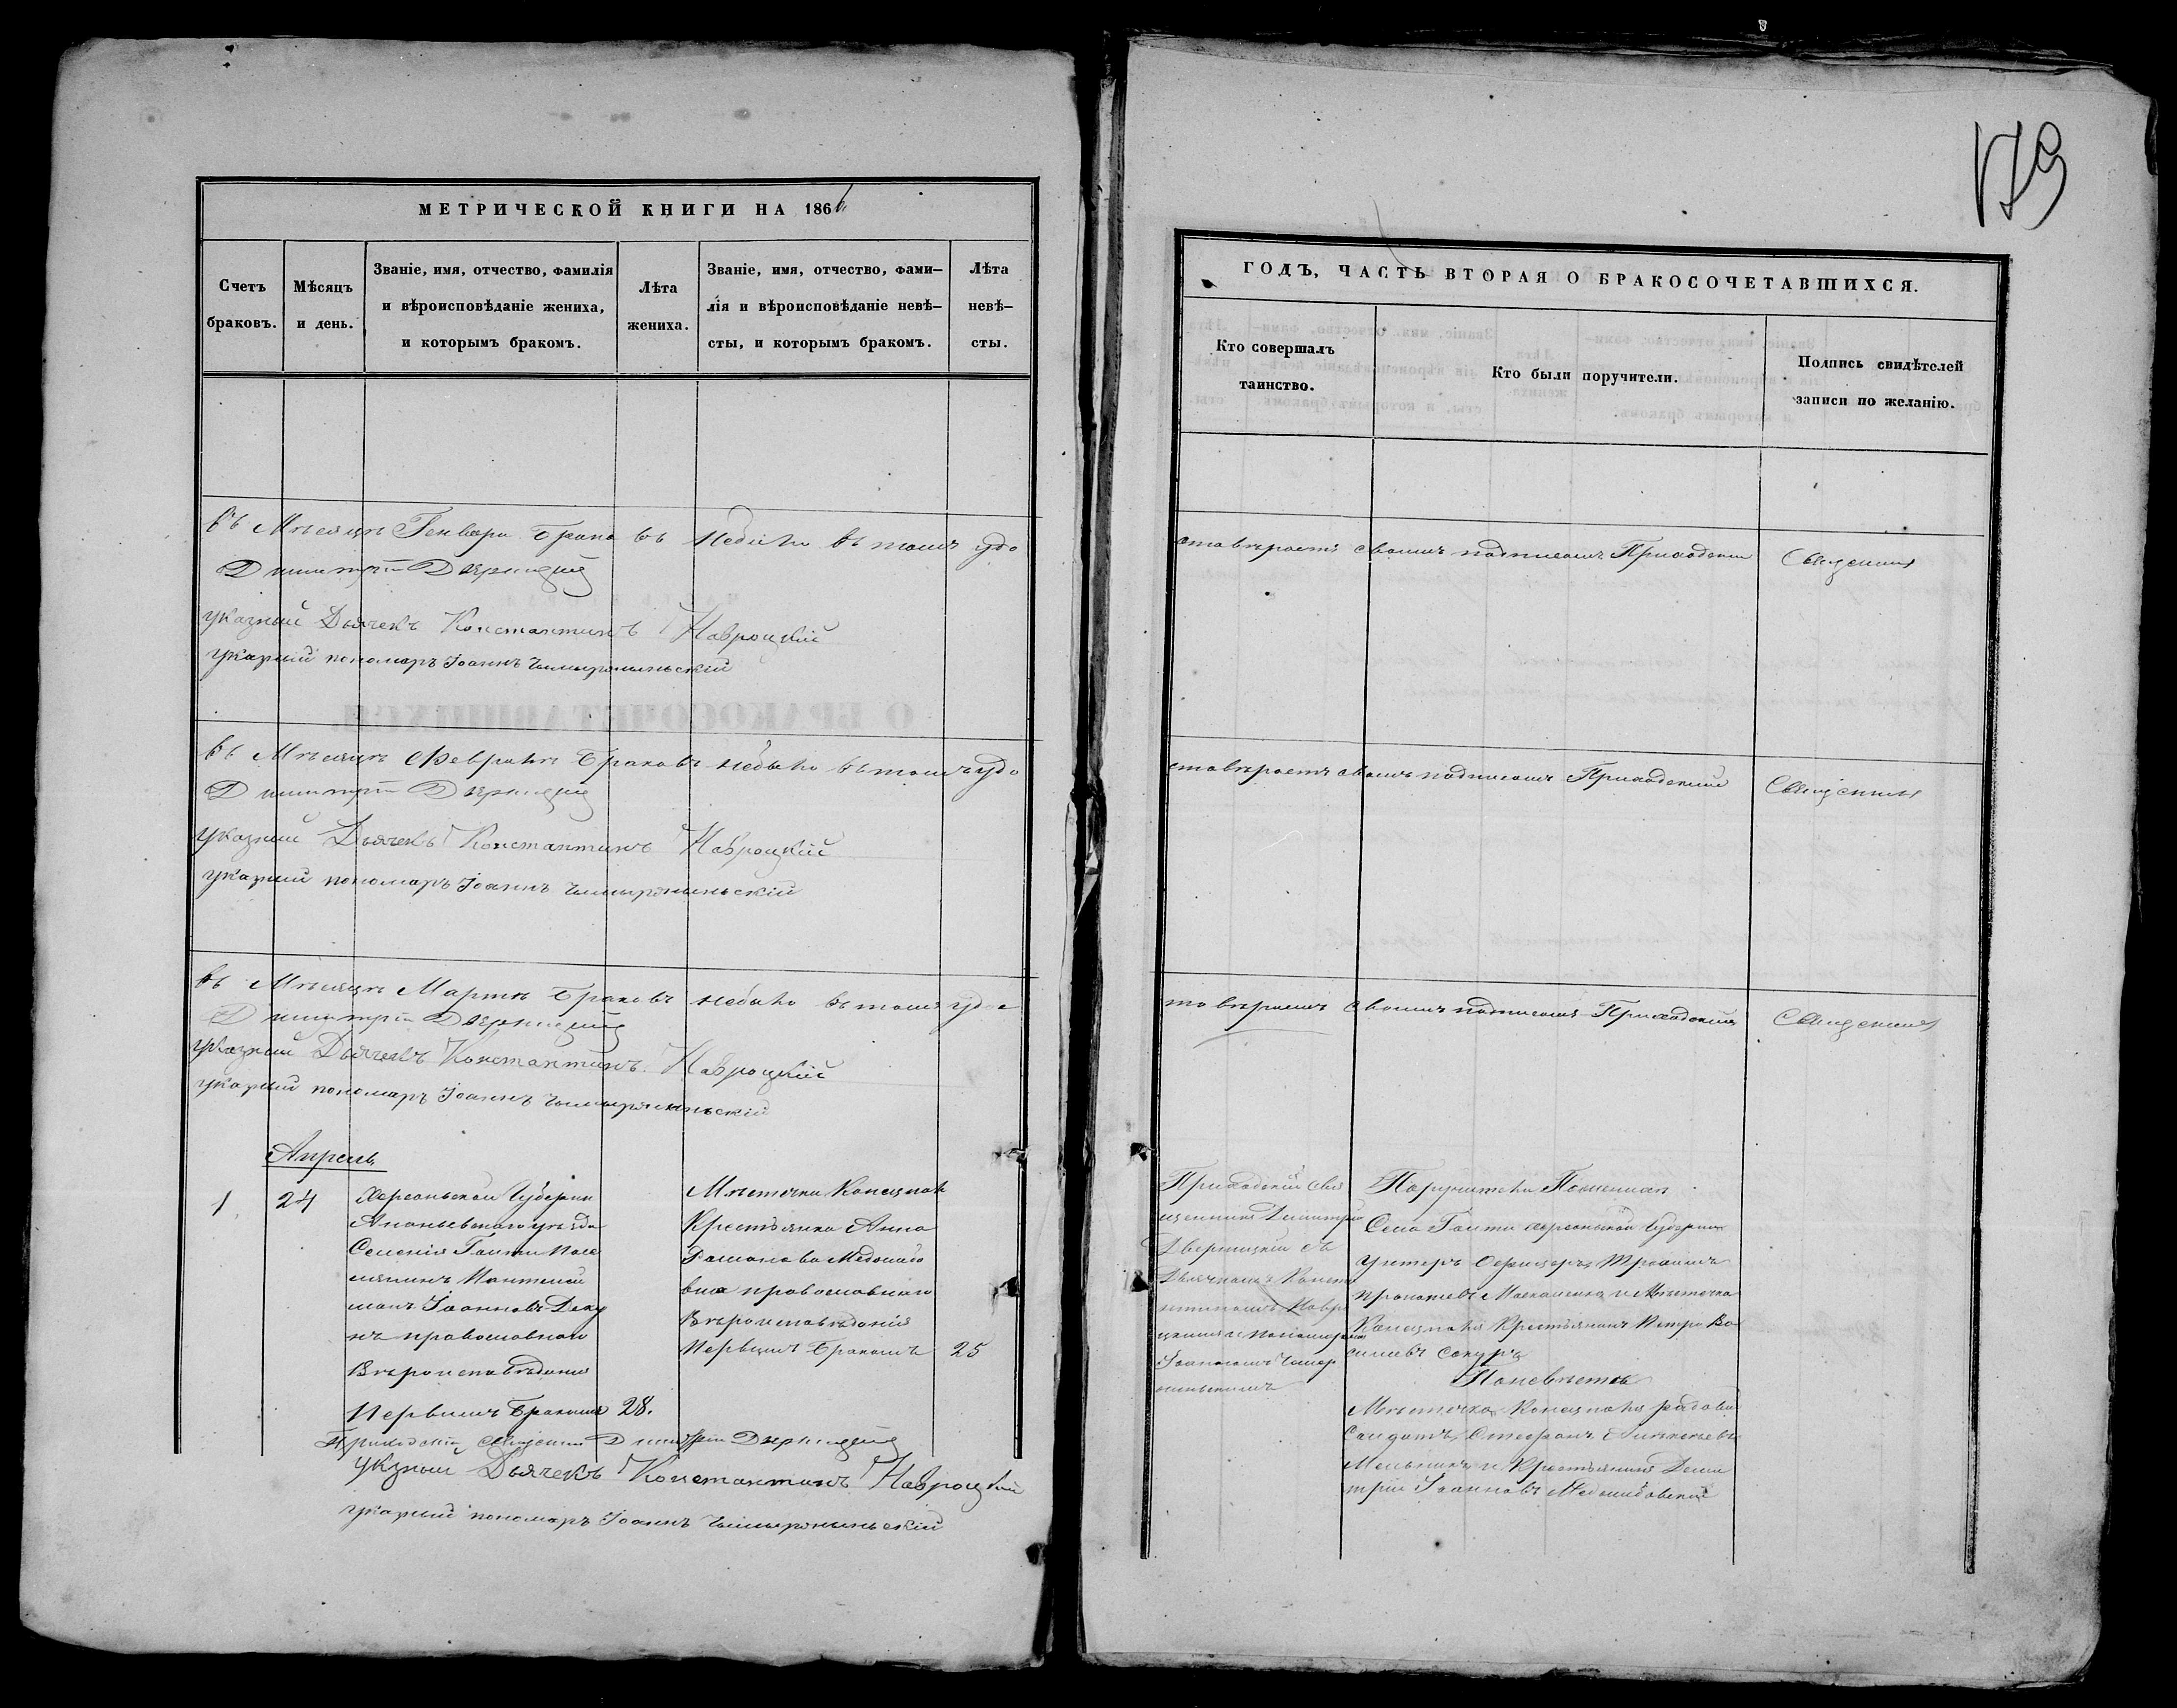 179
МЕТРИЧЕСКОЙ КНИГИ НА 1866
Счетъ браковъ.
Мѣсяцъ и день.
Званіе, имя, отчество, фамилія
и вѣроисповѣданіе жениха,
и которымъ бракомъ.
Лѣта жениха.
Званіе, имя, отчество, фами-
лія и вѣроисповѣданіе невѣ-
сты, и которымъ бракомъ.
Лѣта невѣ-
сты.
въ Мѣсяцѣ Генвари Брака въ небыло въ томъ удо
Димитрій Дверницкій
указный Дьячекъ Константинъ Навроцкій
указный пономарь Іоаннъ
въ Мѣсяцѣ Февралѣ Браковъ небыло въ томъ удо
Димитрій Дверницкій
указный Дьячекъ Константинъ Навроцкій
указный пономарь Іоаннъ
въ Мѣсяцѣ Мартѣ Браковъ небыло въ томъ удос
Димитрій Дверницкій
указный Дьячекъ Константинъ Навроцкій
указный пономарь Іоаннъ
Апрель
1
24
Херсонской Губерніи
Ананьевского уѣзда
Селенія
Іоанновъ
православного
Вѣроисповѣданія
Первымъ Бракомъ 28.
Мѣстечка
Крестьянка Анна
Романова
православного
Вѣроисповѣданія
Первымъ Бракомъ 25
Приходскій Священникъ Димитрій Дверницкій
указный Дьячекъ Константинъ Навроцкій
указный пономарь Іоаннъ
ГОДЪ, ЧАСТЬ ВТОРАЯ О БРАКОСОЧЕТАВШИХСЯ.
Кто совершалъ
таинство.
Кто были поручители.
Подпись свидѣтелей
записи по желанію.
стовѣряетъ своимъ подписомъ Приходскій Священникъ
стовѣряетъ своимъ подписомъ Приходскій Священникъ
товѣряетъ своимъ подписомъ Приходскій Священникъ
Приходскій Свя
щенникъ Димитрій
Дверницкій съ
Дьячкомъ Конста
нтиномъ Навро
цкимъ и пономаремъ
Іоанномъ
Поручители
Села Херсонской Губерніи
унтеръ Офицеръ
и Мѣстечка
Крестьянинъ Петро Ва
сильевъ
По невѣстѣ
Мѣстечка рядовый
Солдатъ Стефанъ
Мельникъ и Крестьянинъ Дими
трій Іоанновъ